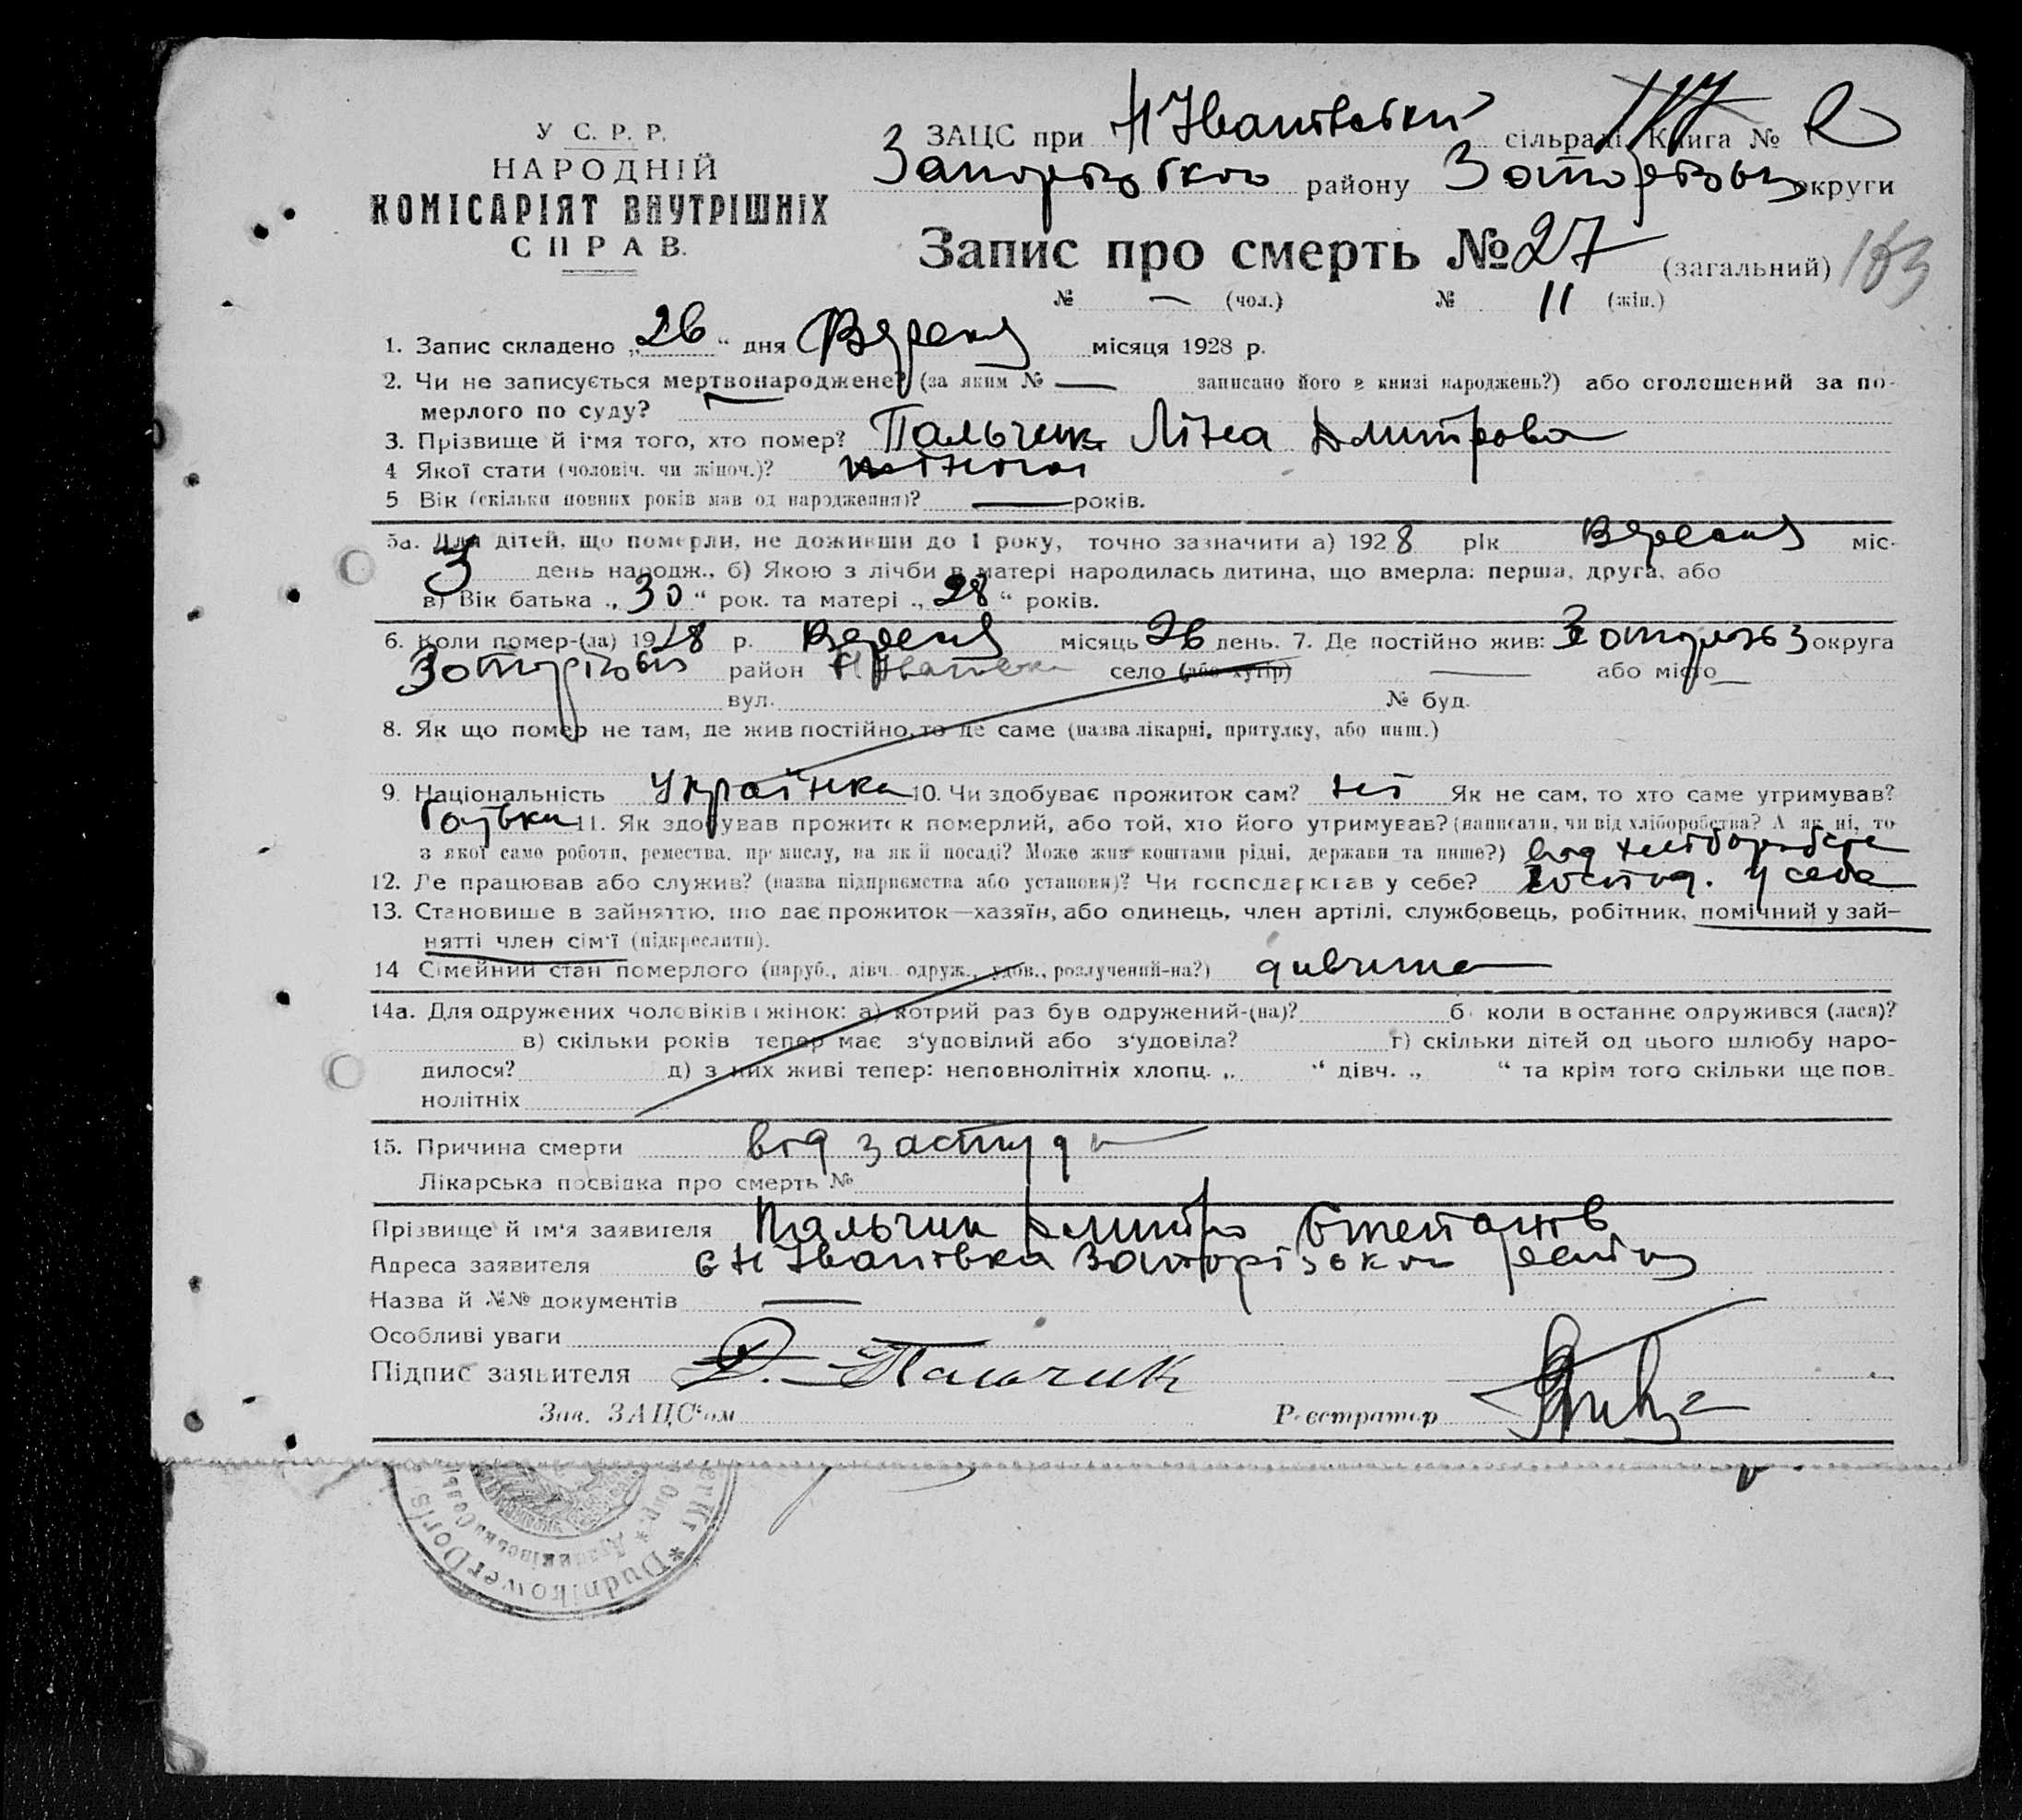 У С. Р. Р.
НАРОДНІЙ
КОМІСАРІЯТ ВНУТРІШНІХ
СПРАВ.
ЗАЦС при Н Іванівський сільраді Книга № 2
Запорізького району Запорізьк округи
Запис про смерть № 27 (загальний) 163
№ — (чол.) № 11 (жін.)
1. Запис складено „26“ дня Вересня місяця 1928 р.
2. Чи не записується мертвонароджене? (за яким № — записано його в книзі народжень?) або оголошений за по-
мерлого по суду?
3. Прізвище й ім'я того, хто помер? Пальчик Ліна Дмитрова
4 Якої стати (чоловіч. чи жіноч.)? жіночої
5 Вік (скільки повних років мав од народження)? — років.
5а. Для дітей, що померли, не доживши до 1 року, точно зазначити а) 1928 рік Вересня міс-
3 день народж., б) Якою з лічби в матері народилась дитина, що вмерла: перша, друга, або
в) Вік батька „30“ рок. та матері „28“ років.
6. Коли помер-(ла) 1928 р. Вересня місяць 26 день. 7. Де постійно жив: Запоріз округа
Запорізьк район Н Іванівка село (або хутір) — або місто —
вул. № буд.
8. Як що помер не там, де жив постійно, то де саме (назва лікарні, притулку, або инш.)
9. Національність Українка 10. Чи здобуває прожиток сам? ні Як не сам, то хто саме утримував?
батьки 11. Як здобував прожиток померлий, або той, хто його утримував? (написати, чи від хліборобства? А як ні, то
з якої саме роботи, ремества, промислу, на якій посаді? Може жив коштами рідні, держави та инше?) від хліборобств
12. Де працював або служив? (назва підприємства або установи)? Чи господарював у себе? господ. у себе
13. Становище в зайняттю, що дає прожиток—хазяїн, або одинець, член артілі, службовець, робітник, помічний у зай-
нятті член сім'ї (підкреслити).
14 Сімейний стан померлого (паруб., дівч. одруж., удов., розлучений-на?) дивчина
14а. Для одружених чоловіків і жінок: а) котрий раз був одружений-(на)? б) коли в останнє одружився (лася)?
в) скільки років тепер має з'уповілий або з'удовіла? г) скільки дітей од цього шлюбу наро-
дилося? д) з них живі тепер: неповнолітніх хлопц. „ “ дівч. „ “ та крім того скільки ще пов-
нолітніх
15. Причина смерти від застуди
Лікарська посвідка про смерть №
Прізвище й ім'я заявителя Пальчик Дмитро Степанів
Адреса заявителя с Н Іванівка Запорізьк
Назва й №№ документів —
Особливі уваги
Підпис заявителя Д. Пальчик
Зав. ЗАЦС'ом Реєстратор
* Dudnikower Dorf